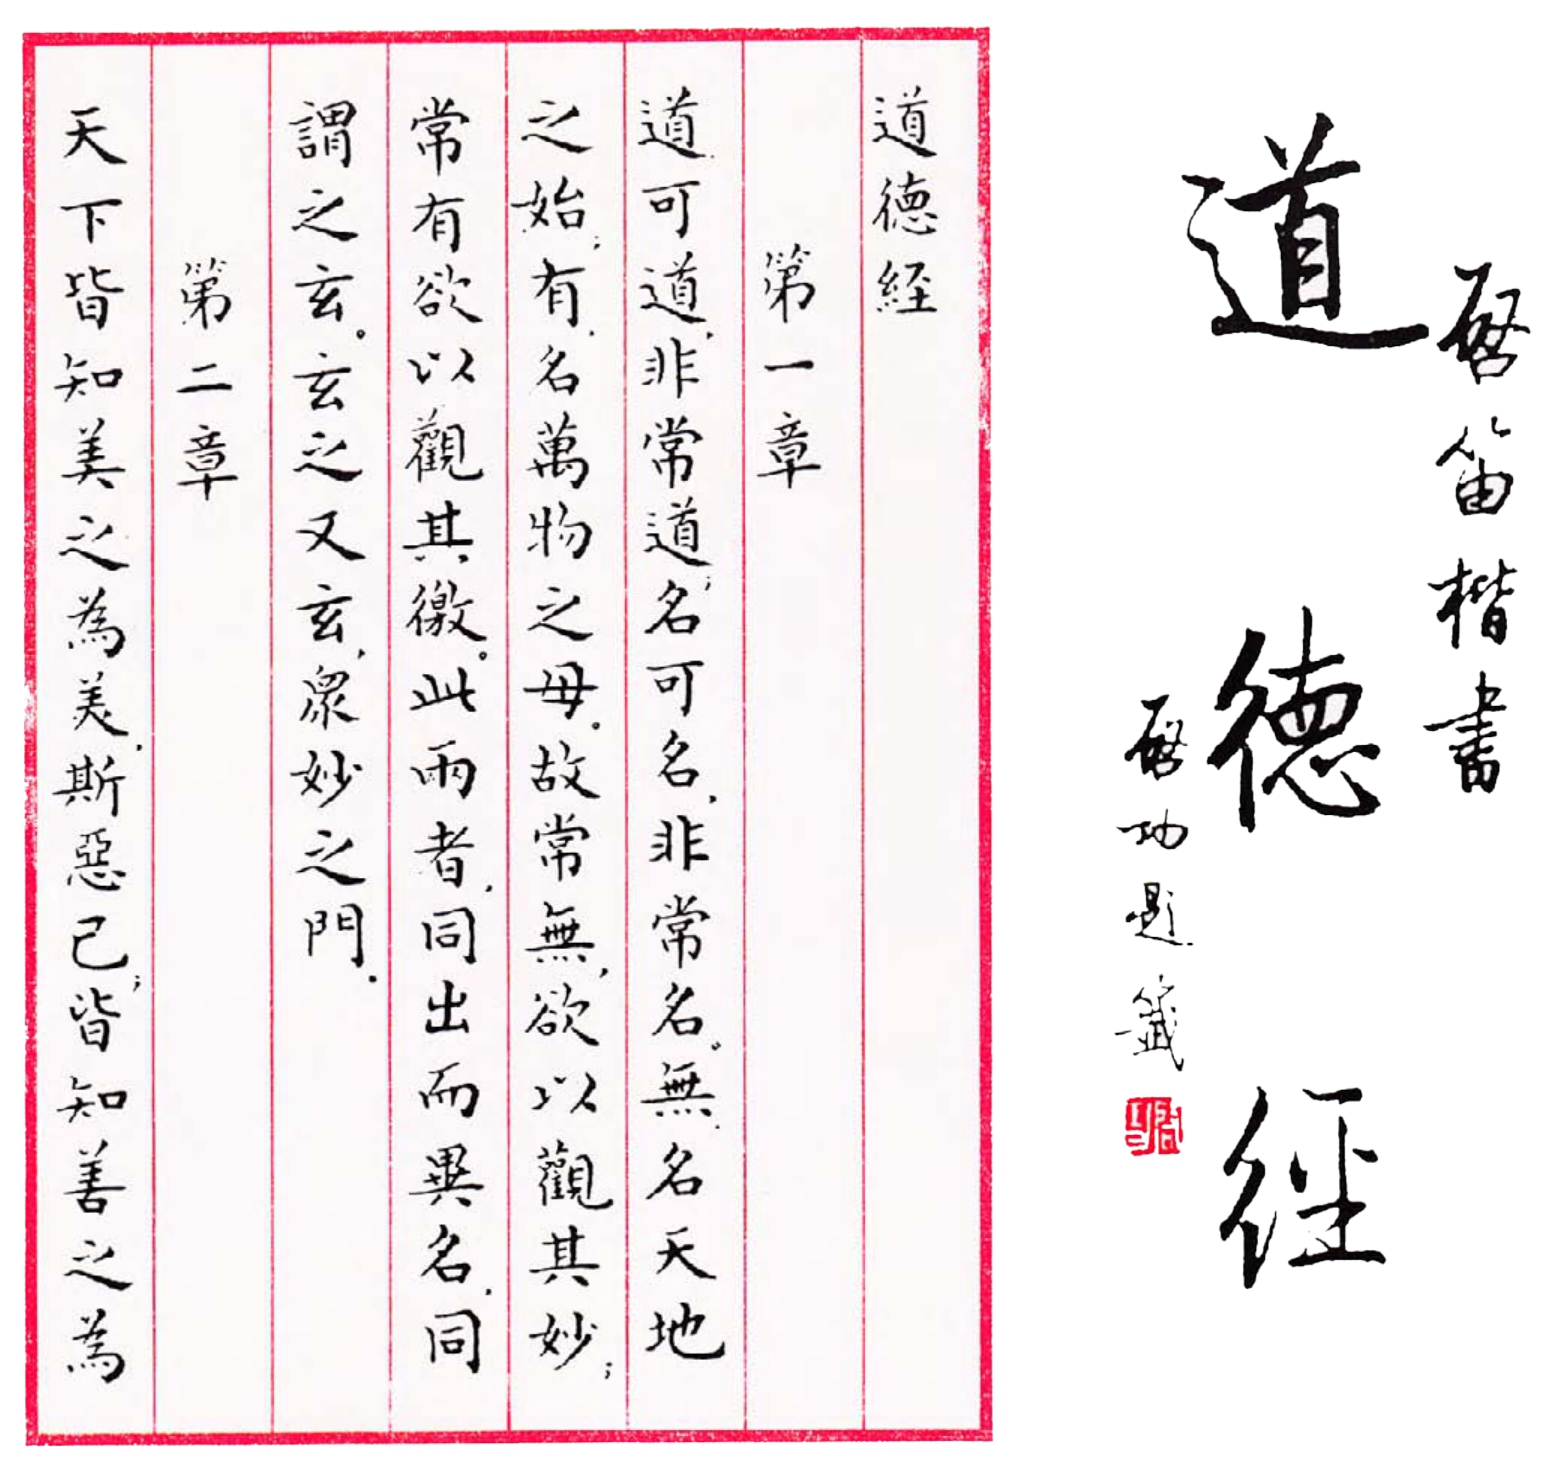 啓笛楷書
道德經
啓功題籤
道德經
第一章
道.可道,非常道;名可名,非常名。無.名天地
之始;有.名萬物之母。故常無,欲以觀其妙;
常有欲以觀其徼。此兩者,同出而異名,同
謂之玄。玄之又玄,眾妙之門.
第二章
天下皆知美之為美,斯惡已;皆知善之為